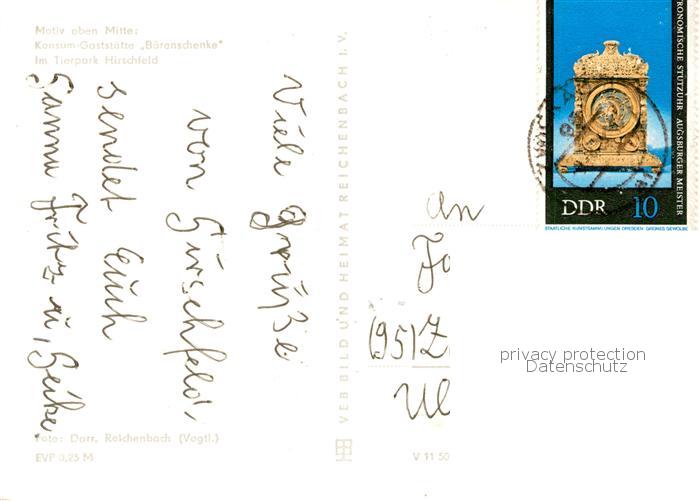 Motiv oben Mitte:
Konsum-Gaststätte „Bärenschenke"
im Tierpark Hirschfeld
Viele Grüße
von Hirschfeld,
sendet Euch
Fritz u,
Foto: Darr, Reichenbach (Vogtl.)
EVP 0,25 M
VEB BILD UND HEIMAT REICHENBACH I. V.
V 11 50
TRONOMISCHE STUTZUHR · AUGSBURGER MEISTER
DDR 10
STAATLICHE KUNSTSAMMLUNGEN DRESDEN GRÜNES GEWÖLBE
An
(95) Z
privacy protection
Datenschutz